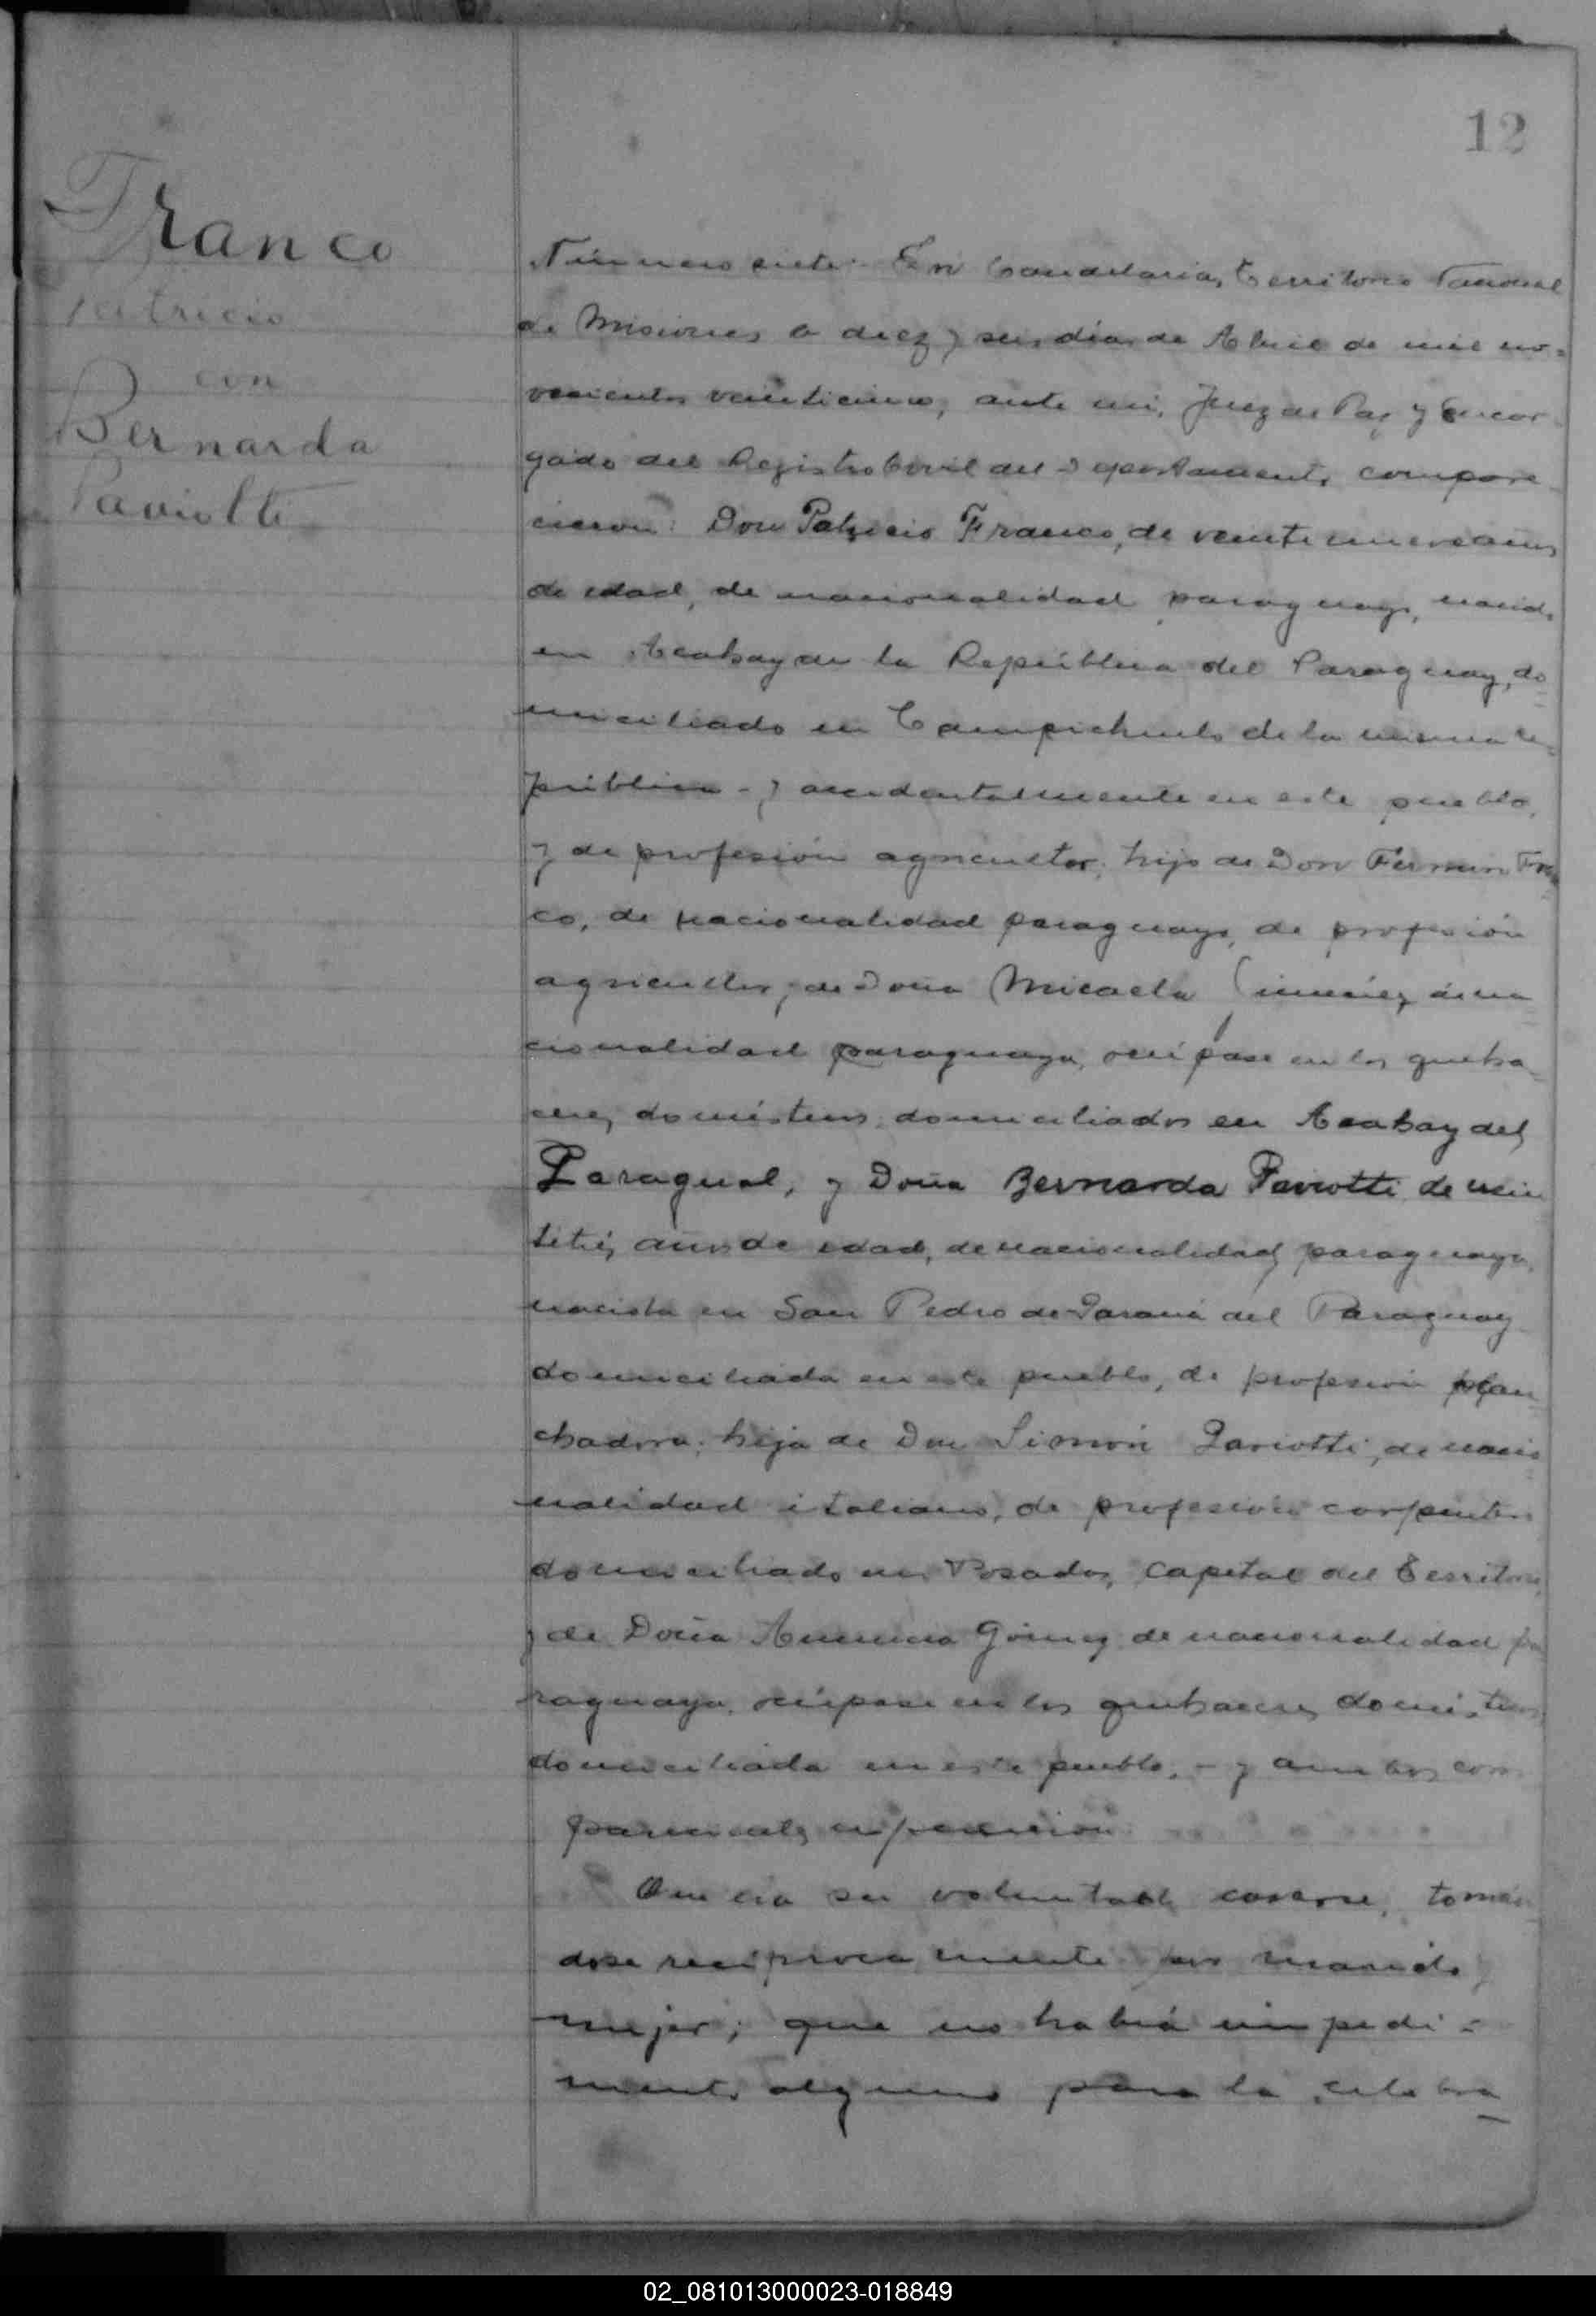 12
Franco
Patricio
con
Bernarda
Paviotti
Número siete. En Candelaria, Territorio Nacional
de Misiones a diez y seis días de Abril de mil no=
vecientos veinticinco, ante mi, Juez de Paz y Encar-
gado del Registro Civil del Departamento, compare-
cieron: Don Patricio Franco, de veintinueve años
de edad, de nacionalidad paraguayo, nacido
en Acahay de la República del Paraguay, do=
miciliado en Campichuelo de la misma re=
pública - y accidentalmente en este pueblo,
y de profesión agricultor, hijo de Don Fermin Fran=
co, de nacionalidad paraguayo, de profesión
agricultor, y de Doña Micaela Gimenez de na=
cionalidad paraguaya, ocúpase en los queha-
ceres domésticos, domiciliados en Acahay del
Paragual, y Doña Bernarda Paviotti de vein
titrés años de edad, de nacionalidad paraguaya,
nacida en San Pedro de Paraná del Paraguay
domiciliada en este pueblo, de profesión plan-
chadora, hija de Don Simón Paviotti, de nacio=
nalidad italiano, de profesión carpintero
domiciliado en Posadas, Capital del Territorio,
y de Doña Gómez de nacionalidad pa
raguaya, ocúpase en los quehaceres domésticos
domiciliada en este pueblo, - y ambos com
parecientes expusieron
Que era su voluntad casarse, tomán
dose recíprocamente por marido y
mujer; que no había impedi=
mento alguno para la celebra
02_081013000023-018849